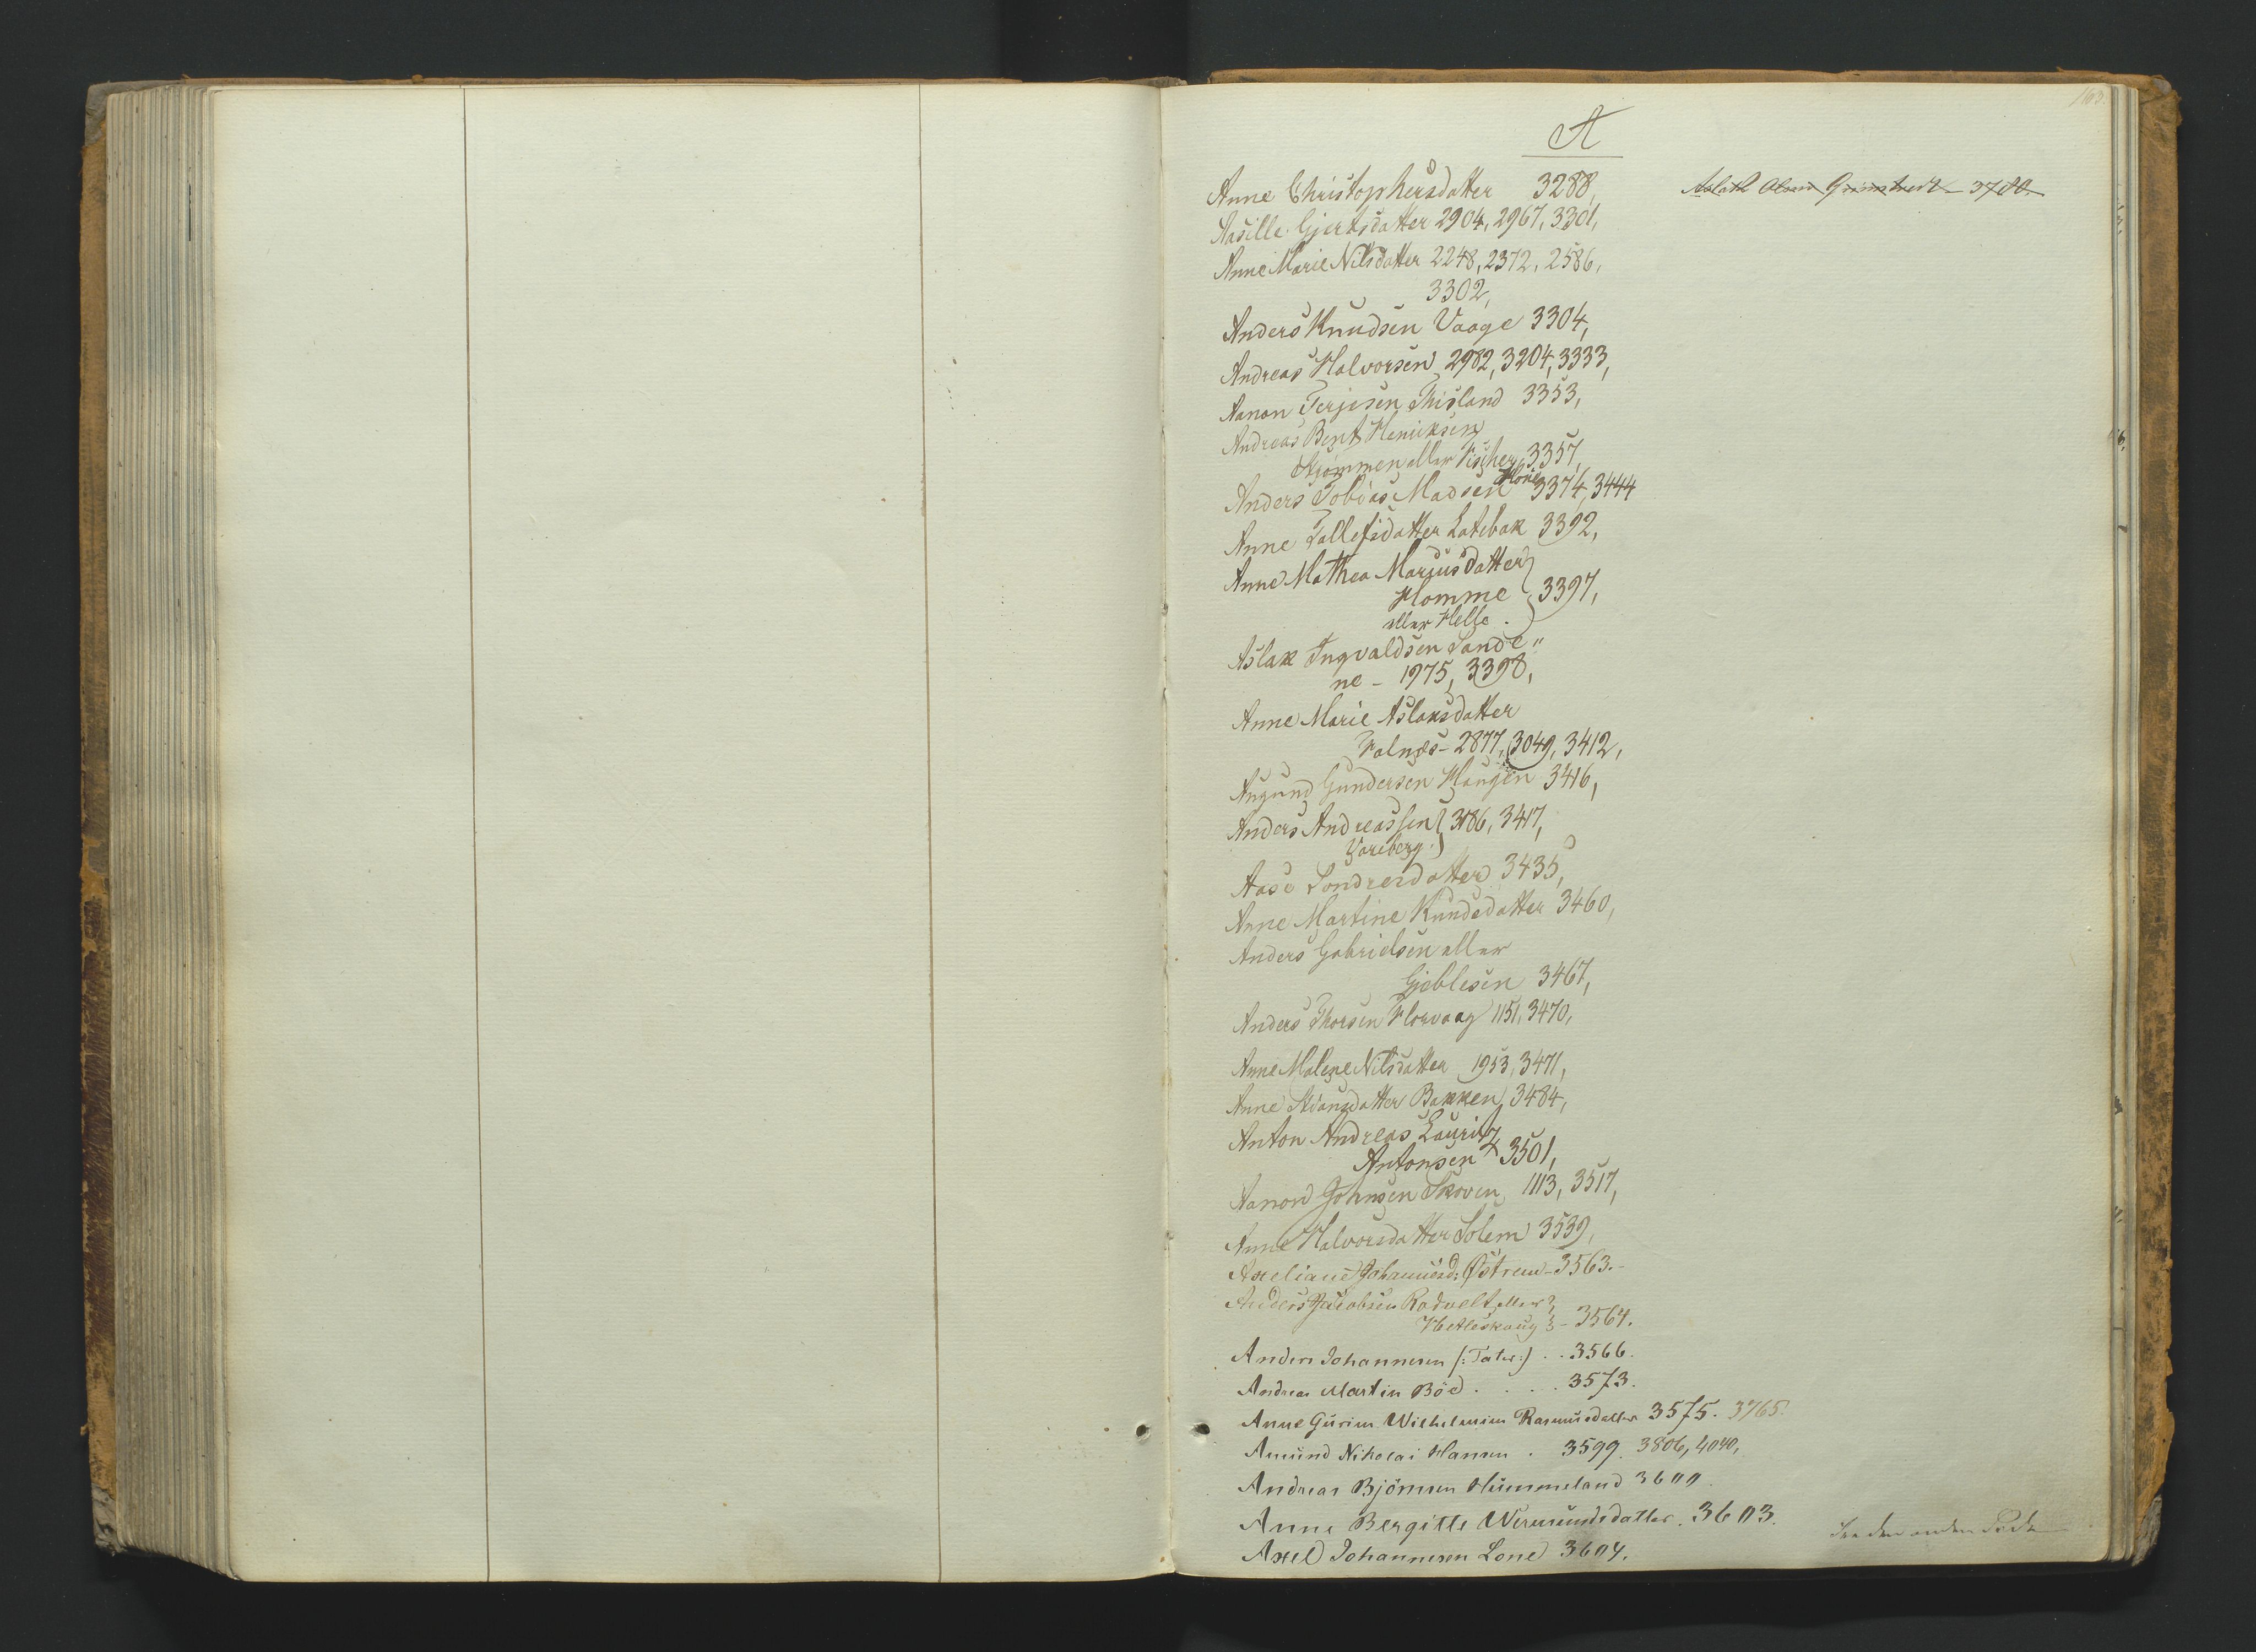 163.
A
Anne Christophersdatter 3288,
Aasille Gjertsdatter 2904, 2967, 3301,
Anne Marie Nilsdatter 2248, 2372, 2586,
3302,
Anders Knudsen Vaage 3304,
Andreas Halvorsen 2982, 3204, 3333,
Aanon Terjesen Thisland 3353,
Andreas Bent Henriksen
Strømmen eller Fischer, 3357,
Anders Tobias Madsen Hone 3374, 3444
Anne Tallefsdatter Latebak 3392,
Anne Mathea Mariusdatter
Homme 3397,
eller Helle.
Aslak Ingvaldsen Sande"
ne - 1975, 3398,
Anne Marie Aslaksdatter
Valnæs - 2877, 3049, 3412,
Augund Gundersen Haugen 3416,
Anders Andreassen 3186, 3417,
Vareberg.
Aase Sondresdatter 3435,
Anne Martine Knudsdatter 3460,
Anders Gabrielsen eller
Gjeblesen 3467,
Anders Thorsen Florvaag 1151, 3470,
Anne Malene Nilsdatter 1953, 3471,
Anne Stiansdatter Bakken 3484,
Anton Andreas Lauritz
Antonsen 3501,
Aanon Johnsen Skoven, 1113, 3517,
Anne Halvorsdatter Solem 3539,
Axeliane Johannesd: Østrem - 3563. -
Anders Jacobsen Rodvelt eller
Hetleskoug - 3564.
Anders Johannesen /: Tater :/ . . 3566.
Andreas Martin Böe . . . . 3573.
Anne Gurine Wilhelmine Rasmusdatter 3575. 3765.
Amund Nikolai Hansen . 3599. 3806, 4040,
Andreas Björnsen Hummeland 3600.
Anne Bergitte Wermundsdatter. 3603.
Axel Johannesen Lone 3604.
Aslak Olsen Grimstvedt - 3780.
See den anden Side